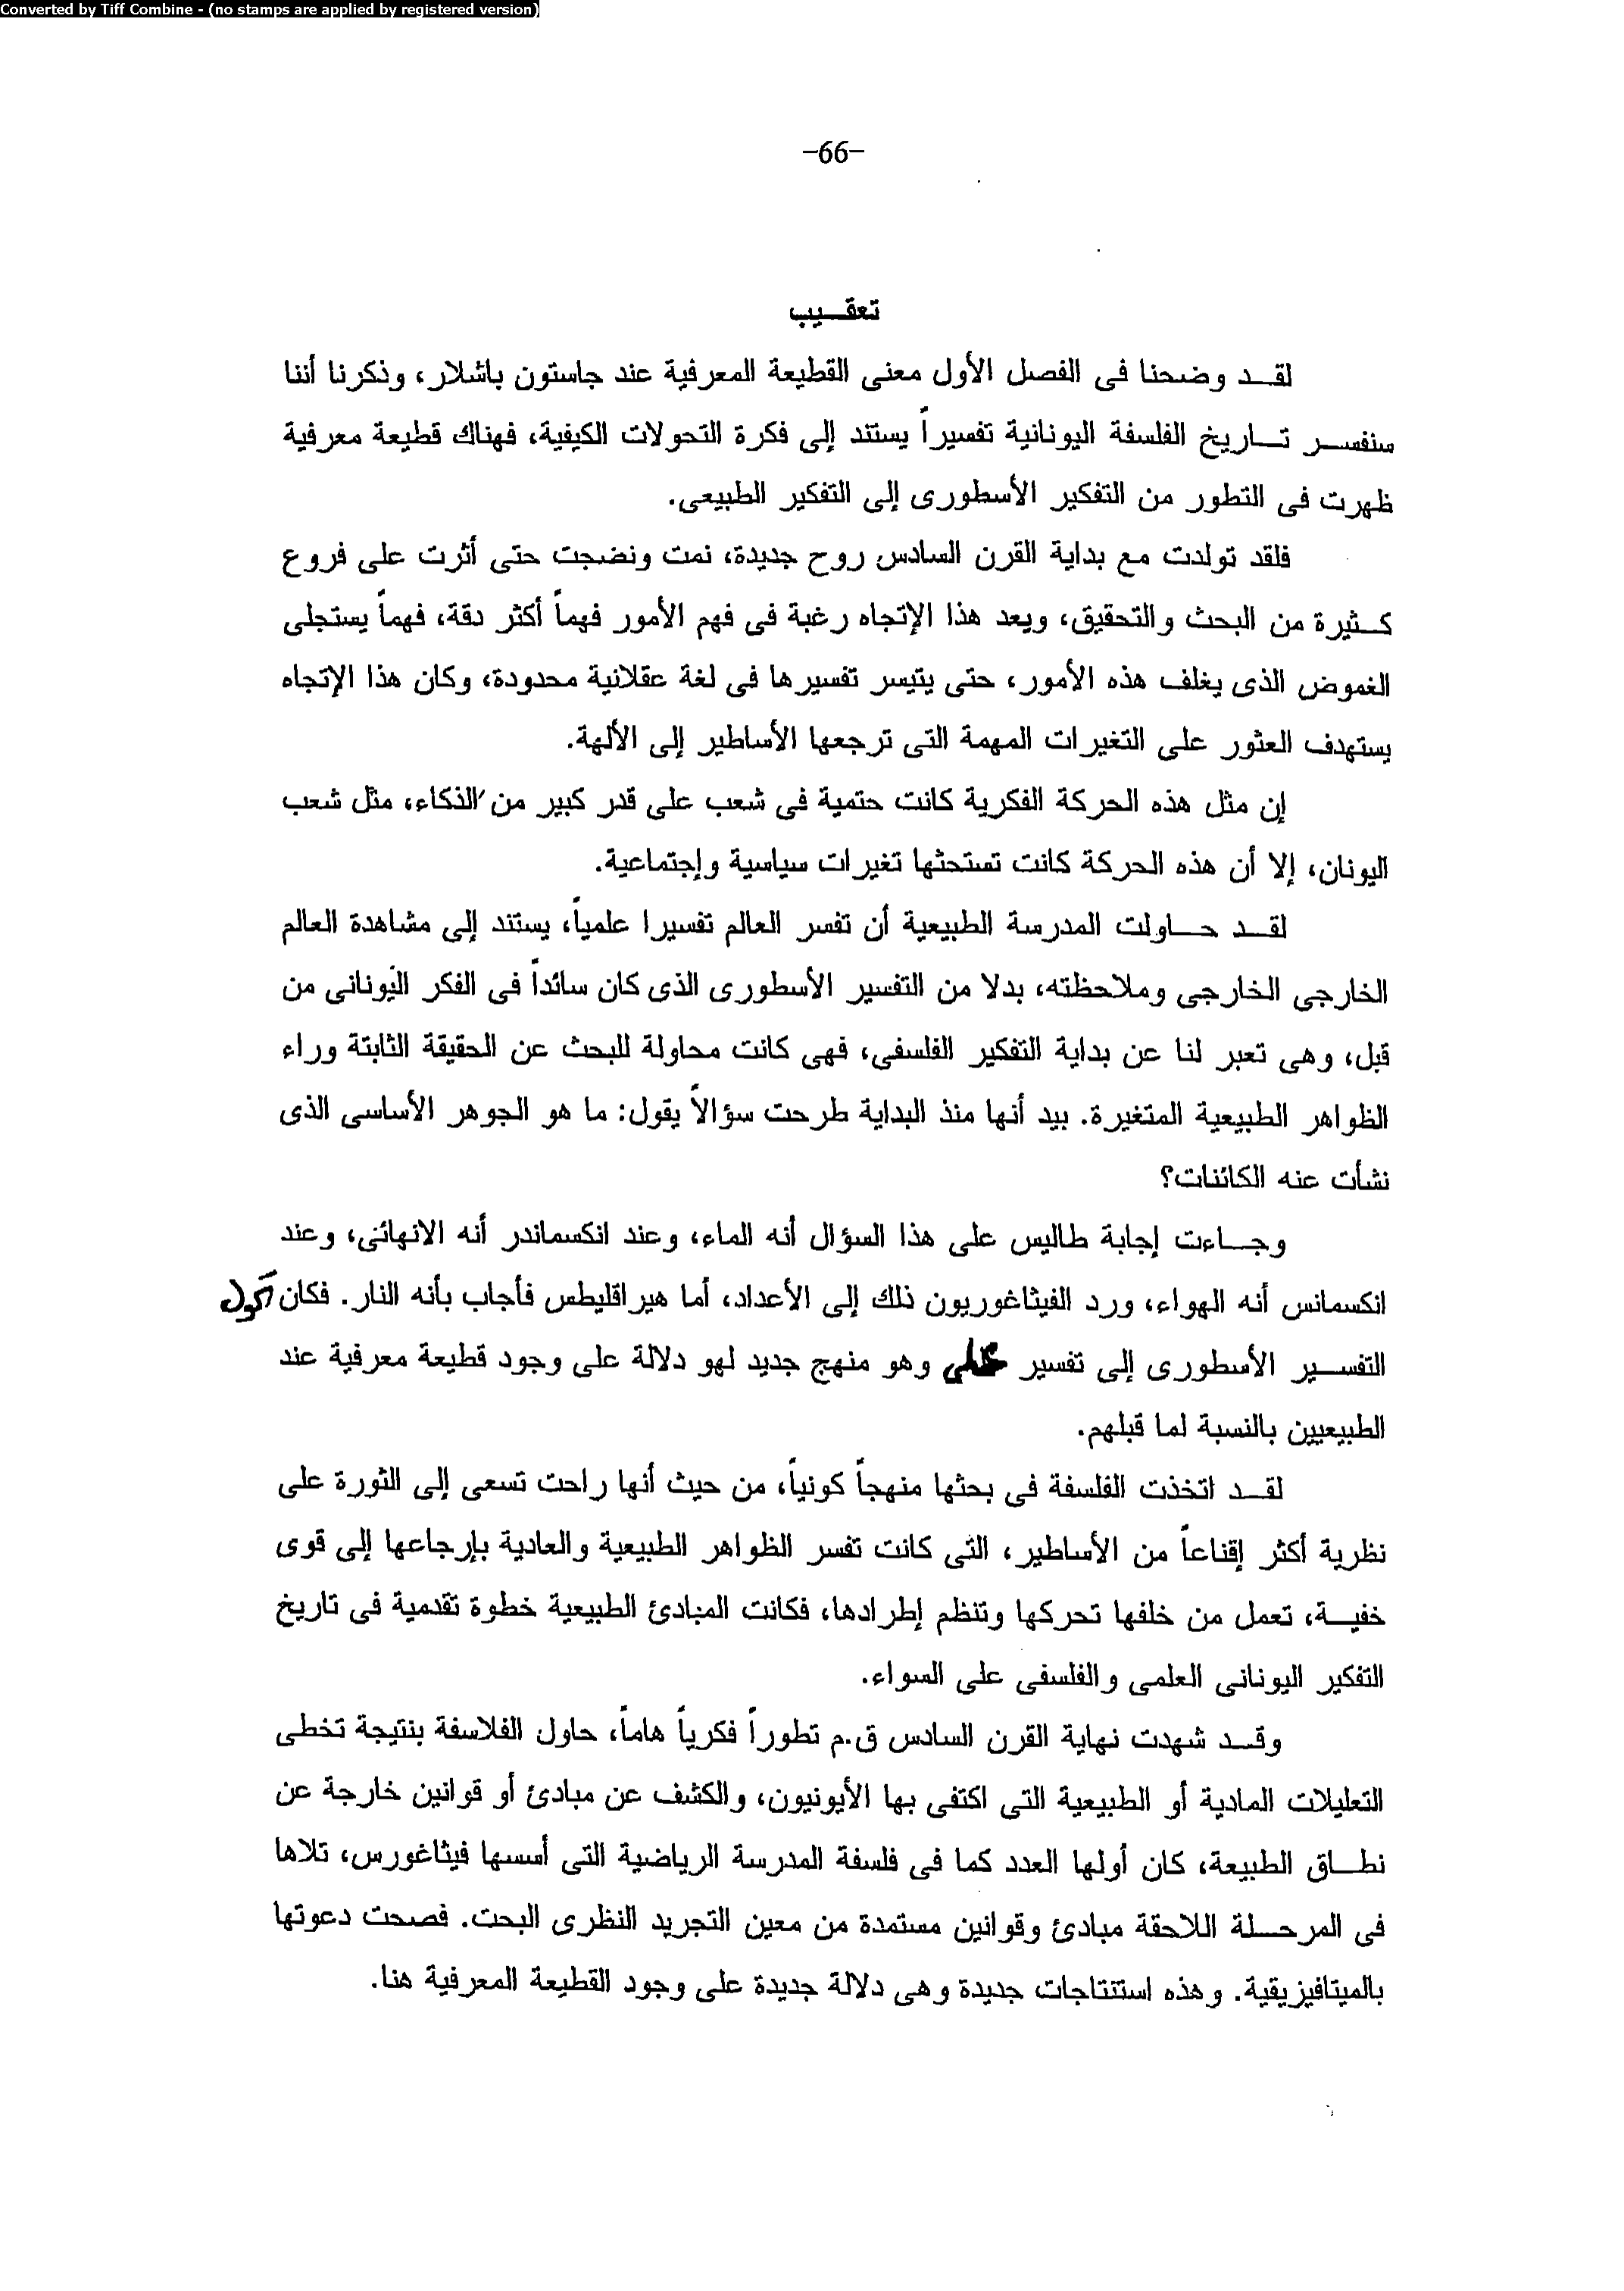 Converted by Tiff Combine - (no stamps are applied by registered version)
-66-
تعقيب
لقد وضحنا فى الفصل الأول معنى القطيعة المعرفية عند جاستون باشلار، وذكرنا أننا
سنفسر تاريخ الفلسفة اليونانية تفسيراً يستند إلى فكرة التحولات الكيفية، فهناك قطيعة معرفية
ظهرت فى التطور من التفكير الأسطورى إلى التفكير الطبيعى.
فلقد تولدت مع بداية القرن السادس روح جديدة، نمت ونضجت حتى أثرت على فروع
كثيرة من البحث والتحقيق، ويعد هذا الإتجاه رغبة فى فهم الأمور فهماً أكثر دقة، فهماً يستجلى
الغموض الذى يغلف هذه الأمور، حتى يتيسر تفسيرها فى لغة عقلانية محدودة، وكان هذا الإتجاه
يستهدف العثور على التغيرات المهمة التى ترجعها الأساطير إلى الألهة.
إن مثل هذه الحركة الفكرية كانت حتمية فى شعب على قدر كبير من الذكاء، مثل شعب
اليونان، إلا أن هذه الحركة كانت تستحثها تغيرات سياسية وإجتماعية.
لقد حاولت المدرسة الطبيعية أن تفسر العالم تفسيرا علمياً، يستند إلى مشاهدة العالم
الخارجى الخارجى وملاحظته، بدلا من التفسير الأسطورى الذى كان سائداً فى الفكر اليونانى من
قبل، وهى تعبر لنا عن بداية التفكير الفلسفى، فهى كانت محاولة للبحث عن الحقيقة الثابتة وراء
الظواهر الطبيعية المتغيرة. بيد أنها منذ البداية طرحت سؤالاً يقول: ما هو الجوهر الأساسى الذى
نشأت عنه الكائنات؟
وجاءت إجابة طاليس على هذا السؤال أنه الماء، وعند انكسماندر أنه الانهائى، وعند
انكسمانس أنه الهواء، ورد الفيثاغوريون ذلك إلى الأعداد، أما هيراقليطس فأجاب بأنه النار. فكان
التفسير الأسطورى إلى تفسير وهو منهج جديد لهو دلالة على وجود قطيعة معرفية عند
الطبيعيين بالنسبة لما قبلهم.
لقد اتخذت الفلسفة فى بحثها منهجاً كونياً، من حيث أنها راحت تسعى إلى الثورة على
نظرية أكثر إقناعاً من الأساطير، التى كانت تفسر الظواهر الطبيعية والعادية بإرجاعها إلى قوى
خفية، تعمل من خلفها تحركها وتنظم إطرادها، فكانت المبادئ الطبيعية خطوة تقدمية فى تاريخ
التفكير اليونانى العلمى والفلسفى على السواء.
وقد شهدت نهاية القرن السادس ق.م تطوراً فكرياً هاماً، حاول الفلاسفة بنتيجة تخطى
التعليلات المادية أو الطبيعية التى اكتفى بها الأيونيون، والكشف عن مبادئ أو قوانين خارجة عن
نطاق الطبيعة، كان أولها العدد كما فى فلسفة المدرسة الرياضية التى أسسها فيثاغورس، تلاها
فى المرحلة اللاحقة مبادئ وقوانين مستمدة من معين التجريد النظرى البحت. فصحت دعوتها
بالميتافيزيقية. وهذه استنتاجات جديدة وهى دلالة جديدة على وجود القطيعة المعرفية هنا.